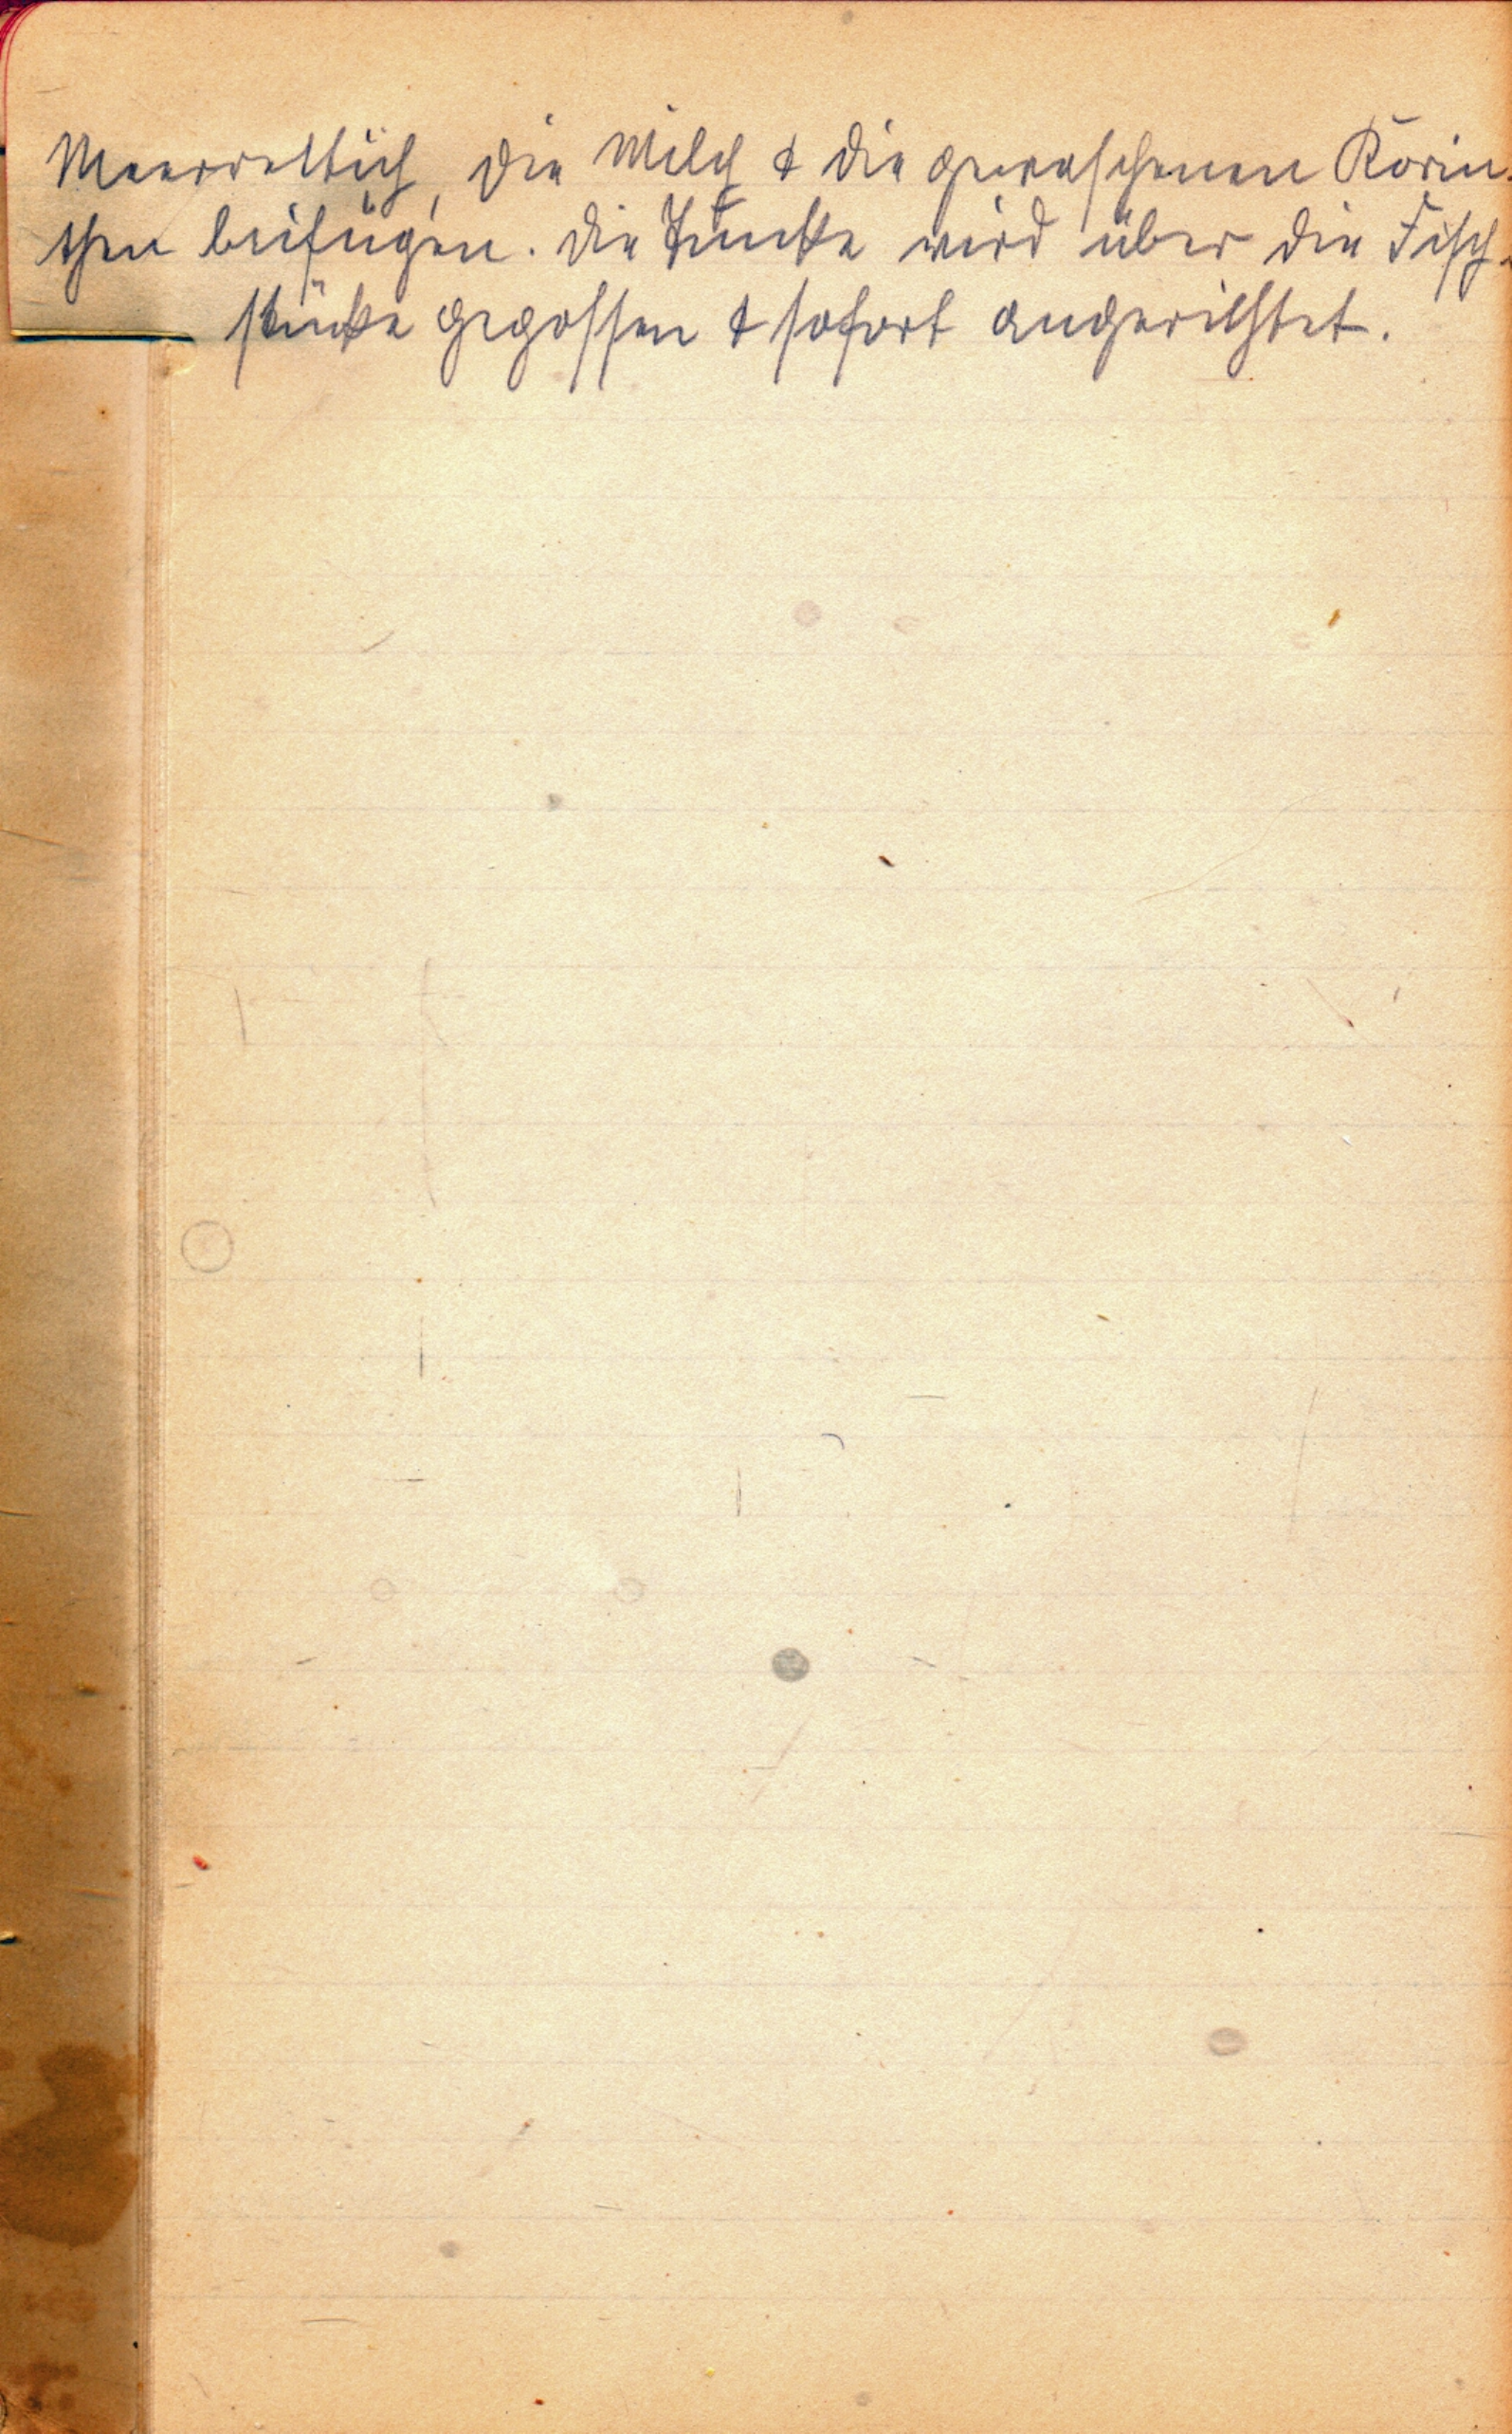 Meerrettich, die Milch & die gewaschenen Korin-
then beifügen. Die Tunke wird über die Fisch-
stücke gegossen & sofort angerichtet.